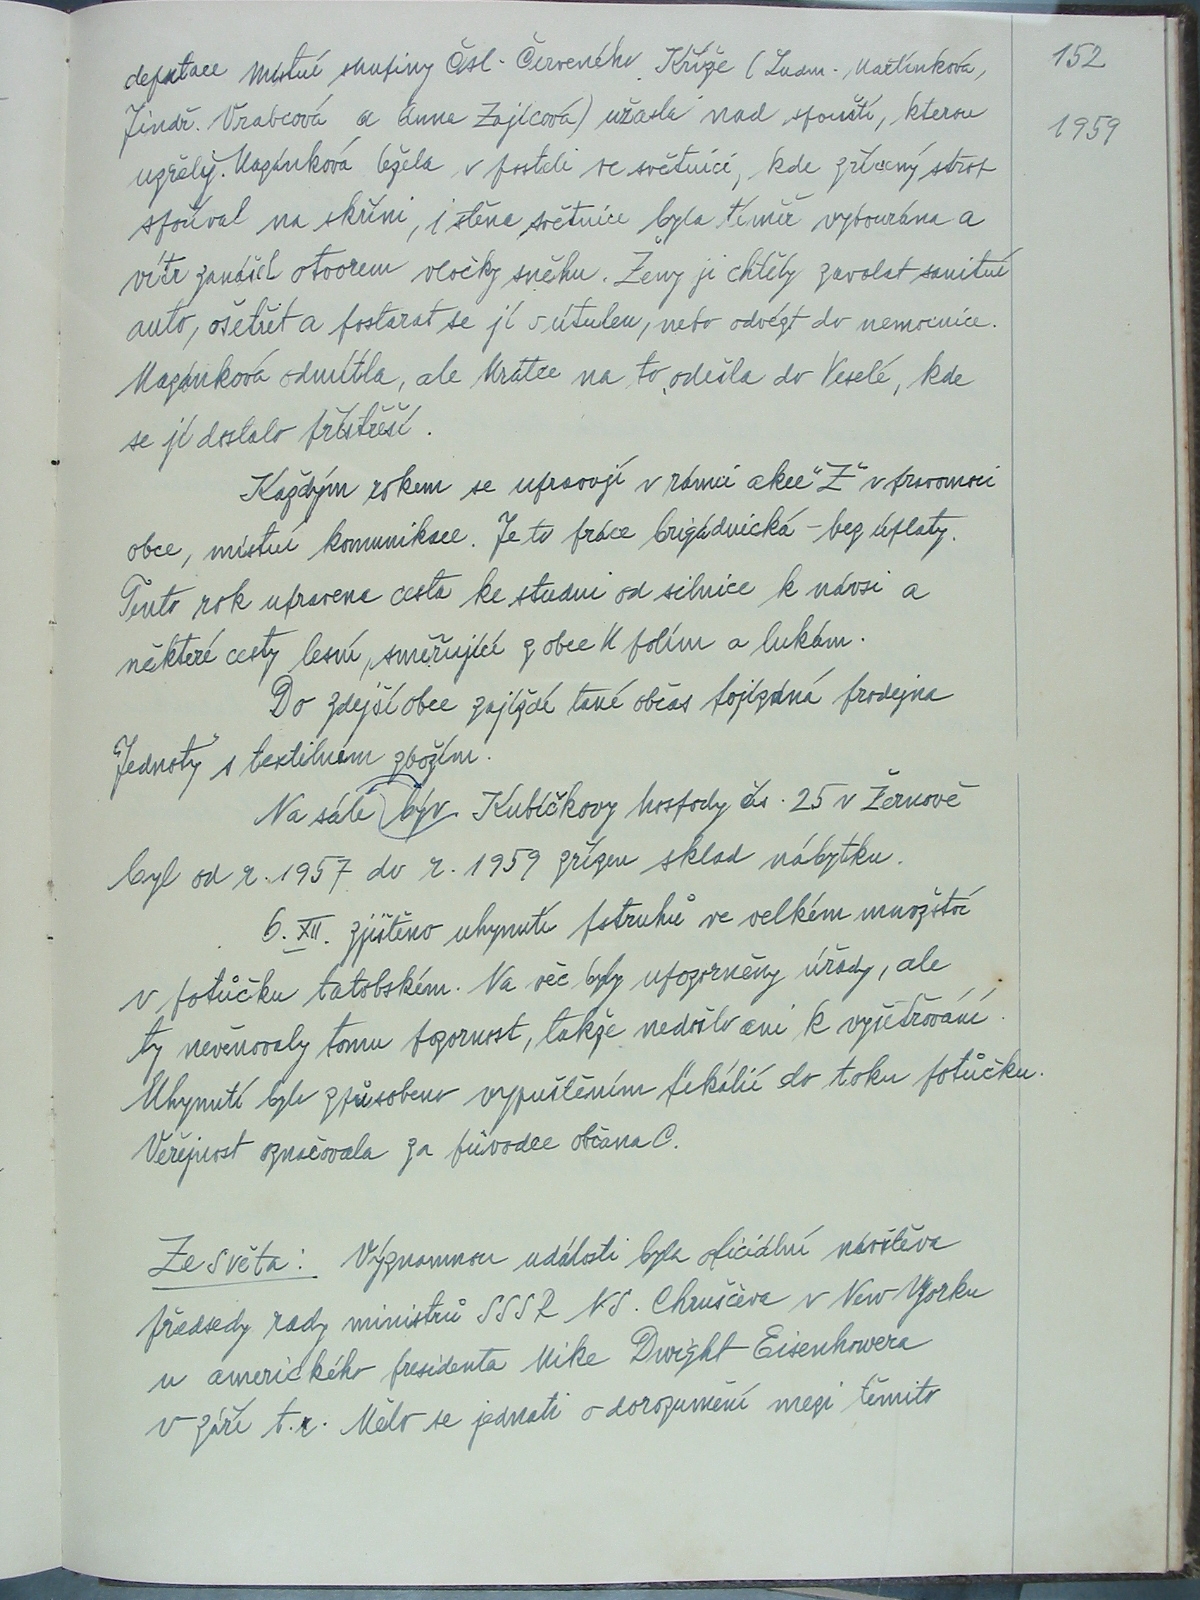 152
1959
deputace místní skupiny Čsl. Červeného Kříže (Ludm. Martínková,
Jindř. Vrabcová a Anna Zajícová) užasla nad spouští, kterou
uzřely. Mazánková ležela v posteli ve světnici, kde zřícený strop
spočíval na skříni, i stěna světnice byla téměř vybourána a
vítr zanášel otvorem vločky sněhu. Ženy jí chtěly zavolat sanitní
auto, ošetřit a postarat se jí o útulek, nebo odvézt do nemocnice.
Mazánková odmítla, ale krátce na to odešla do Veselé, kde
se jí dostalo přístřeší.
Každým rokem se upravují v rámci akce "Z" v pravomoci
obce, místní komunikace. Je to práce brigádnická – bez úplaty.
Tento rok upravena cesta ke studni od silnice k návsi a
některé cesty lesní, směřující z obce k polím a lukám.
Do zdejší obce zajíždí také občas pojízdná prodejna
"Jednoty" s textilním zbožím.
Na sále býv. Kubíčkovy hospody čís. 25 v Žernově
byl od r. 1957 do r. 1959 zřízen sklad nábytku.
6. XII. zjištěno uhynutí pstruhů ve velkém množství
v potůčku tatobském. Na věc byly upozorněny úřady, ale
ty nevěnovaly tomu pozornost, takže nedošlo ani k vyšetřování.
Uhynutí bylo způsobeno vypuštěním fekálií do toku potůčku.
Veřejnost označovala za původce občana C.
Ze světa: Významnou událostí byla oficiální návštěva
předsedy rady ministrů SSSR N.S. Chruščeva v New Yorku
u amerického presidenta Mike Dwight Eisenhowera
v září t.r. Mělo se jednati o dorozumění mezi těmito